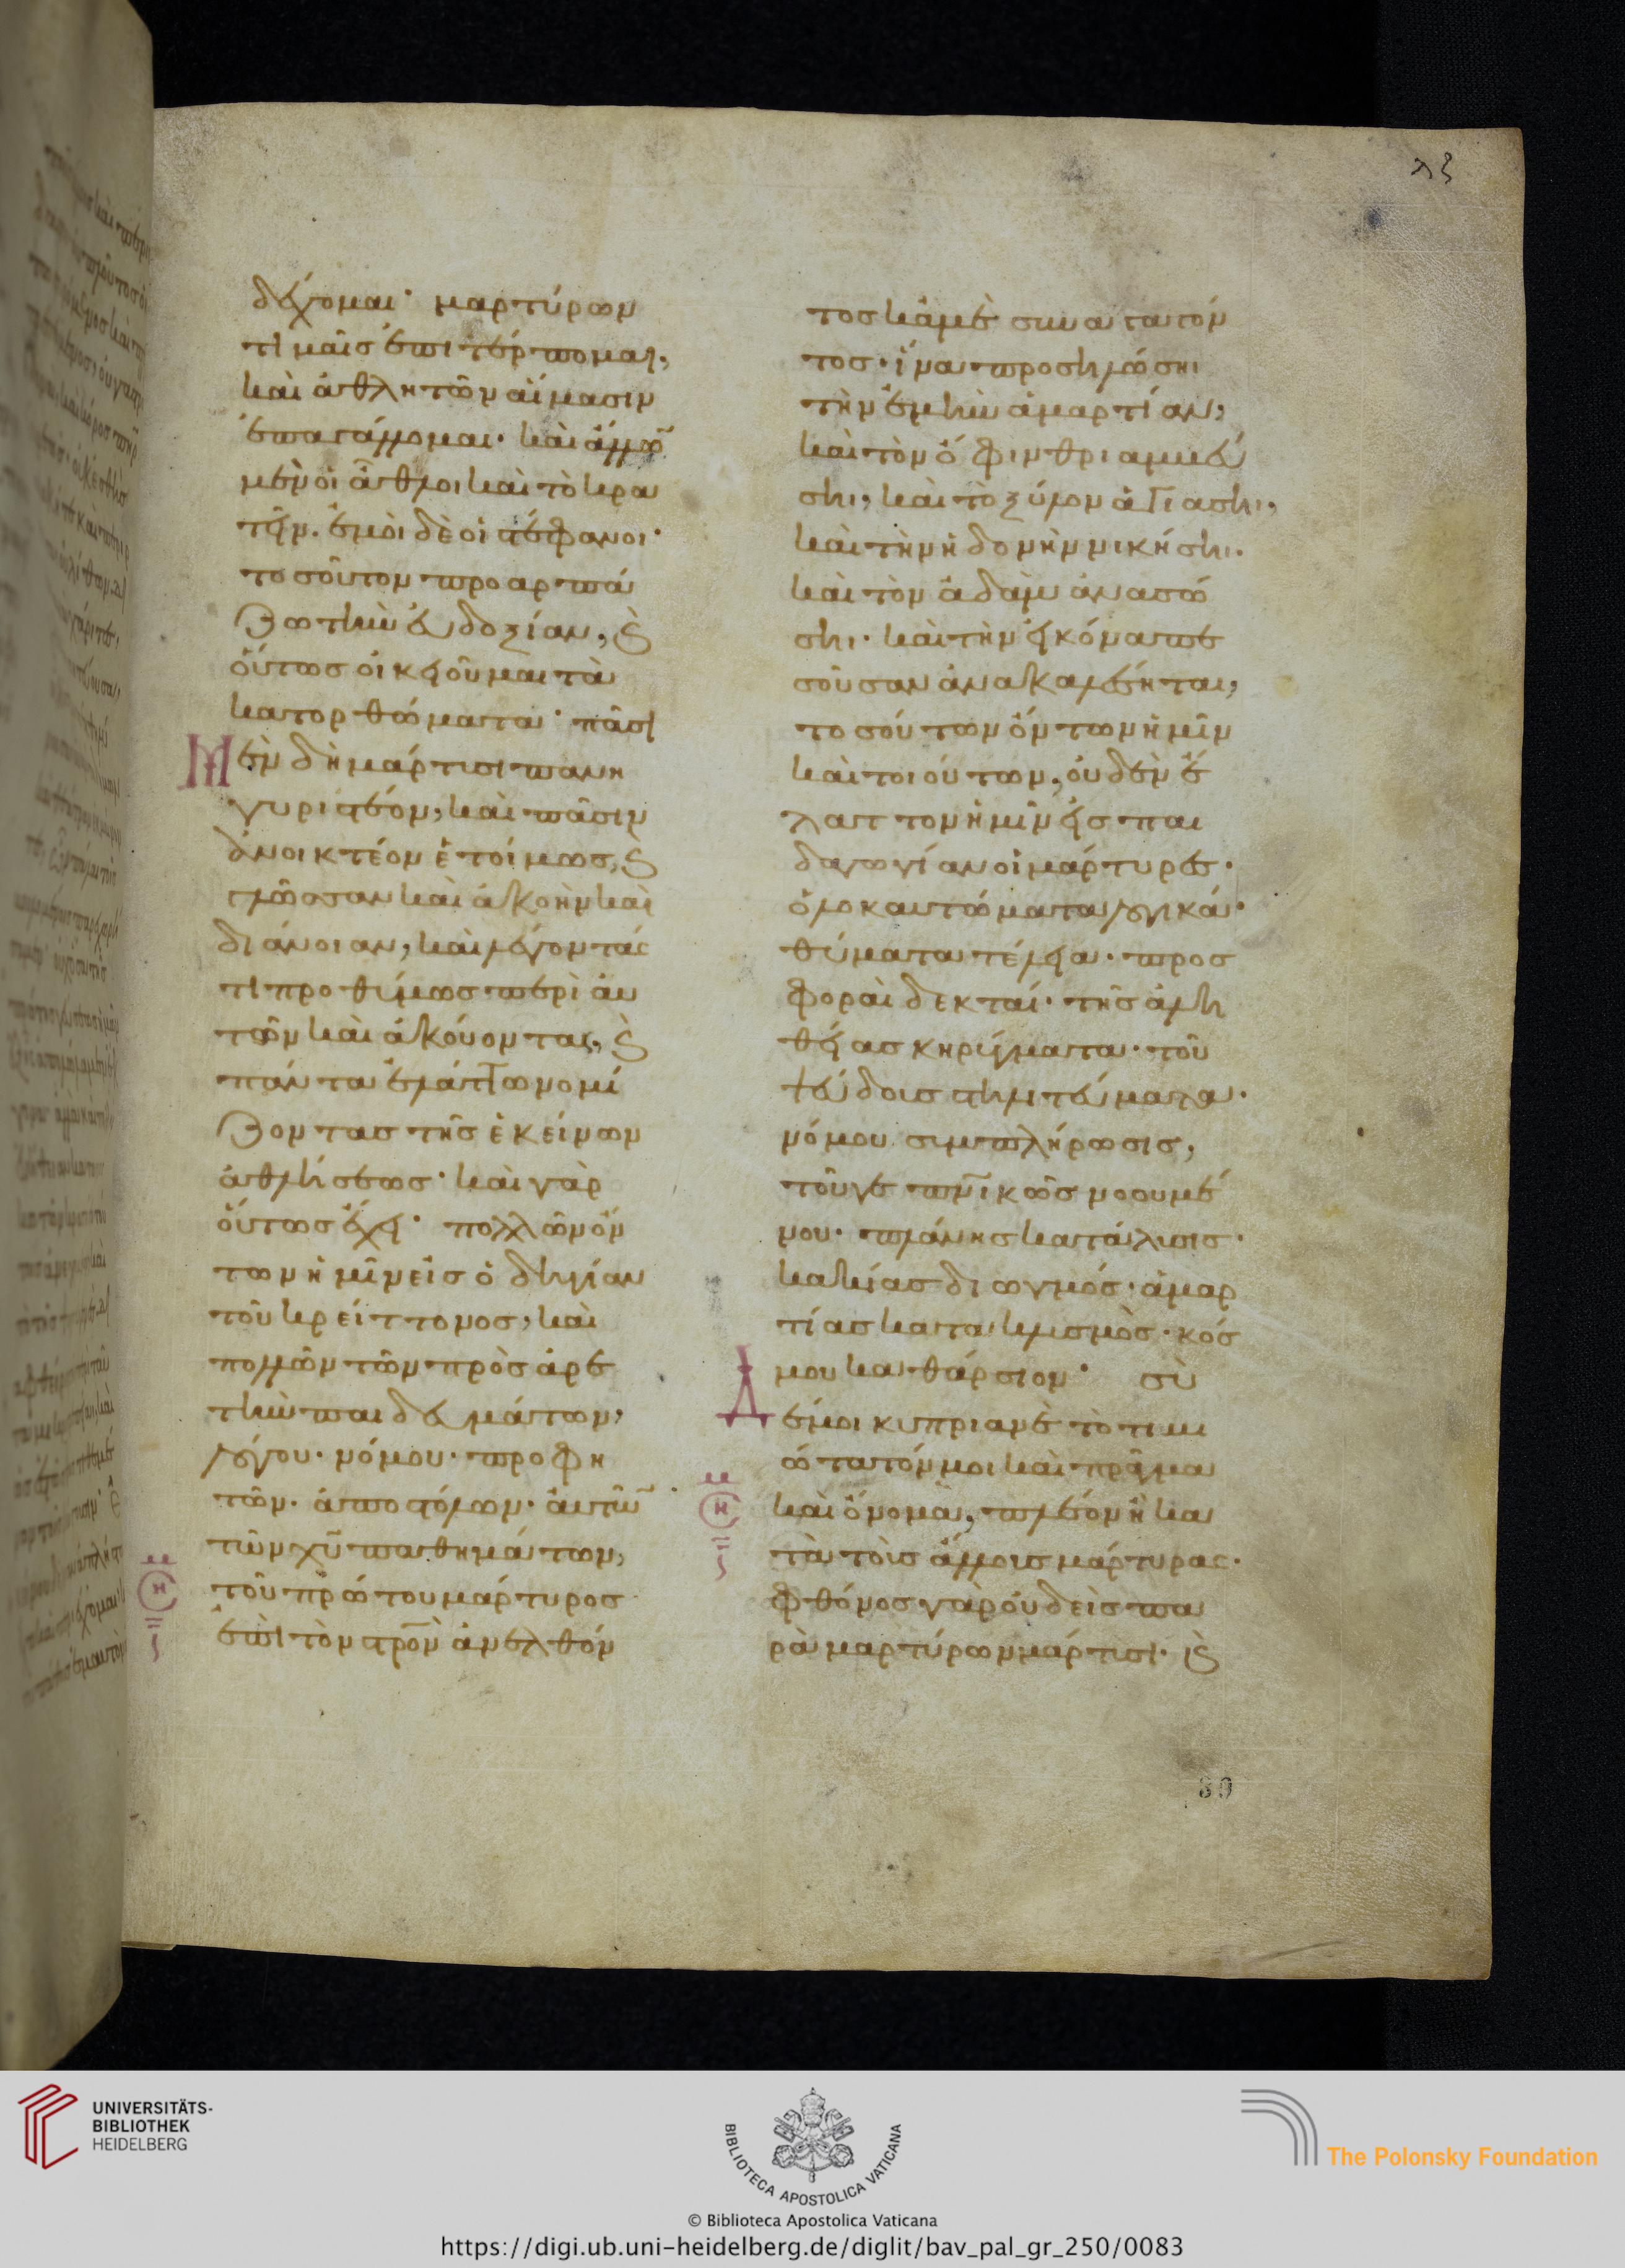 πζ
δέχομαι· μαρτύρων
τιμαῖς ἐπιτέρπομαι,
καὶ ἀθλητῶν αἵμασιν
ἐπαγάλλομαι· καὶ ἄλλων
μὲν οἱ ἆθλοι καὶ τὸ κρα
τεῖν. ἐμοὶ δὲ οἱ στέφανοι·
τοσοῦτον προαρπά
ζω τὴν εὐδοξίαν, καὶ
οὕτως οἰκειοῦμαι τὰ
κατορθώματα· πᾶσι
Μὲν δὴ μάρτυσι πανη
γυριστέον, καὶ πᾶσιν
ἀνοικτέον ἑτοίμως, καὶ
γλῶσσαν καὶ ἀκοὴν καὶ
διάνοιαν, καὶ λέγοντάς
τι προθύμως περὶ αὐ
τῶν καὶ ἀκούοντας, καὶ
πάντα ἐλάττω νομί
ζοντας τῆς ἐκείνων
ἀθλήσεως· καὶ γὰρ
οὕτως ἔχει· πολλῶν ὄν
των ἡμῖν εἰς ὁδηγίαν
τοῦ κρείττονος, καὶ
πολλῶν τῶν πρὸς ἀρε
τὴν παιδευμάτων,
λόγου· νόμου· προφη
τῶν· ἀποστόλων· αὐτῶν
τῶν χυ παθημάτων,
τοῦ πρώτου μάρτυρος
ἐπὶ τὸν στρον ἀνελθόν
τος κἀμὲ συναγαγόν
τος· ἵνα προσηλώσηι
τὴν ἐμὴν ἁμαρτίαν,
καὶ τὸν ὄφιν θριαμβεύ
σηι, καὶ τὸ ξύλον ἁγιάσηι,
καὶ τὴν ἡδονὴν νικήσηι.
καὶ τὸν ἀδὰμ ἀνασώ
σηι· καὶ τὴν εἰκόνα πε
σοῦσαν ἀνακαλέσηται,
τοσούτων ὄντων ἡμῖν
καὶ τοιούτων, οὐδὲν ἔ
λαττον ἡμῖν εἰς παι
δαγωγίαν οἱ μάρτυρες·
ὁλοκαυτώματα λογικά·
θύματα τέλεια· προσ
φοραὶ δεκταί· τῆς ἀλη
θείας κηρύγματα· τοῦ
ψεύδους στηλιτεύματα·
νόμου συμπλήρωσις,
τοῦγε πνικῶς νοουμέ
νου· πλάνης κατάλυσις·
κακίας διωγμός· ἁμαρ
τίας κατακλυσμὸς· κόσ
μου καθάρσιον· σὺ
Δ ἐμοὶ κυπριανὲ τὸ τιμι
ώτατόν μοι καὶ πρᾶγμα
καὶ ὄνομα, πλέον ἢ κα
τὰ τοὺς ἄλλους μάρτυρας·
φθόνος γὰρ οὐδεὶς πα
ρὰ μαρτύρων μάρτυσι· καὶ
89
UNIVERSITÄTS-
BIBLIOTHEK
HEIDELBERG
BIBLIOTECA APOSTOLICA VATICANA
The Polonsky Foundation
© Biblioteca Apostolica Vaticana
https://digi.ub.uni-heidelberg.de/diglit/bav_pal_gr_250/0083